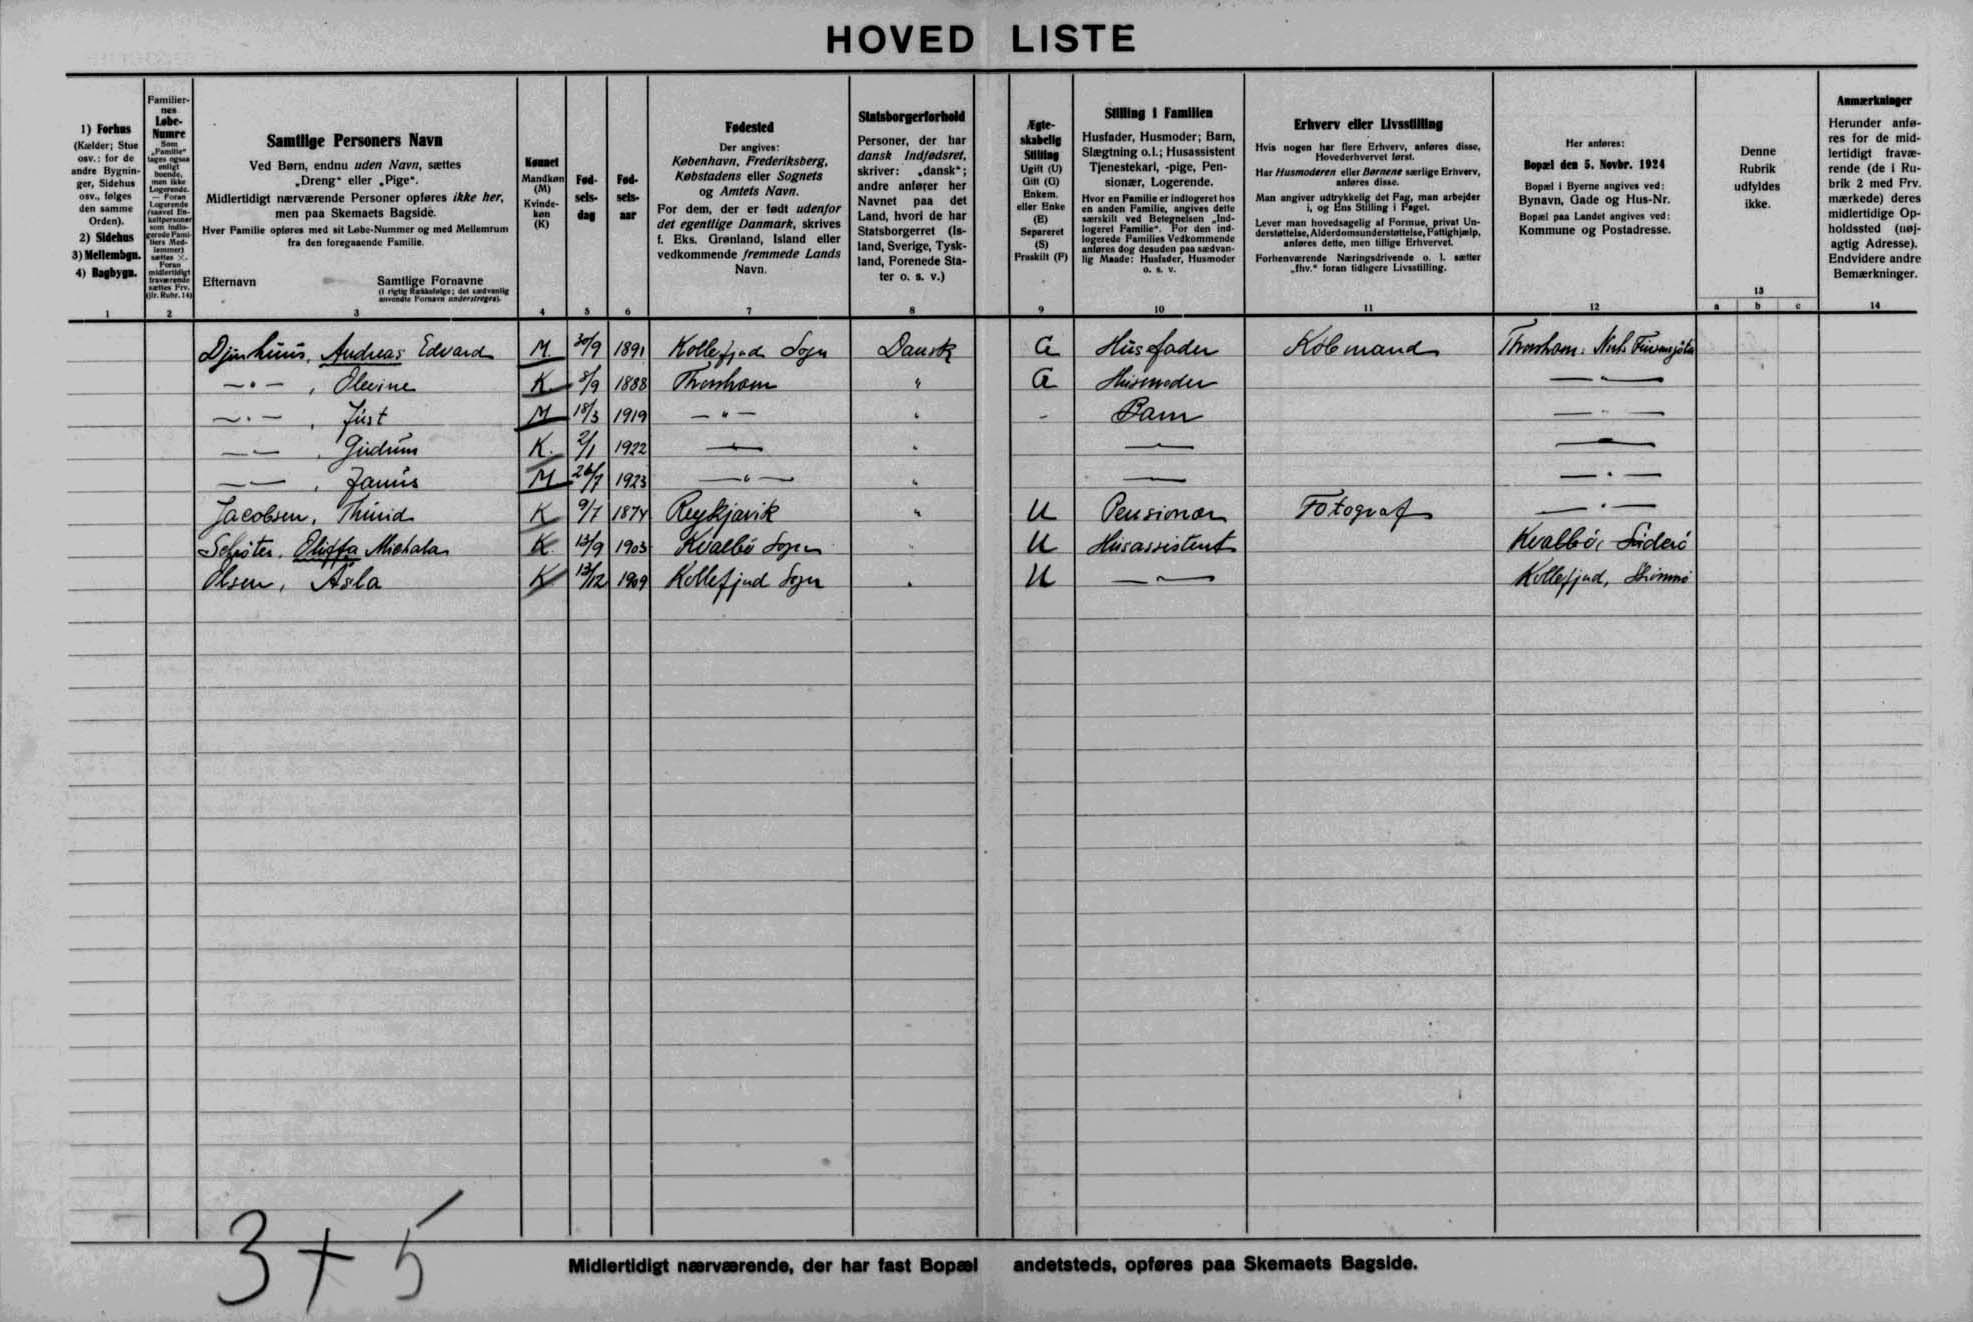 HOVED LISTE
1) Forhus
(Kælder; Stue
osv.: for de
andre Bygnin-
ger, Sidehus
osv., følges
den samme
Orden).
2) Sidehus
3) Mellembgn.
4) Bagbygn.
1
Familier-
nes
Løbe-
Numre
Som
„Familie“
tages ogsaa
enligt
boende,
men ikke
Logerende.
— Foran
Logerende
(saavel En-
keltpersoner
som indlo-
gerede Fami-
liers Med-
lemmer)
sættes ×.
Foran
midlertidigt
fraværende
sættes Frv.
(jfr. Rubr. 14)
2
Samtlige Personers Navn
Ved Børn, endnu uden Navn, sættes
„Dreng“ eller „Pige“.
Midlertidigt nærværende Personer opføres ikke her,
men paa Skemaets Bagside.
Hver Familie opføres med sit Løbe-Nummer og med Mellemrum
fra den foregaaende Familie.
Efternavn Samtlige Fornavne
(i rigtig Rækkefølge; det sædvanlig
anvendte Fornavn understreges).
3
Kønnet
Mandkøn
(M)
Kvinde-
køn
(K)
4
Fød-
sels-
dag
5
Fød-
sels-
aar
6
Fødested
Der angives:
København, Frederiksberg,
Købstadens eller Sognets
og Amtets Navn.
For dem, der er født udenfor
det egentlige Danmark, skrives
f. Eks. Grønland, Island eller
vedkommende fremmede Lands
Navn.
7
Statsborgerforhold
Personer, der har
dansk Indfødsret,
skriver: „dansk“;
andre anfører her
Navnet paa det
Land, hvori de har
Statsborgerret (Is-
land, Sverige, Tysk-
land, Forenede Sta-
ter o. s. v.)
8
Ægte-
skabelig
Stilling
Ugift (U)
Gift (G)
Enkem.
eller Enke
(E)
Separeret
(S)
Fraskilt (F)
9
Stilling i Familien
Husfader, Husmoder; Barn,
Slægtning o.l.; Husassistent
Tjenestekarl, -pige, Pen-
sionær, Logerende.
Hvor en Familie er indlogeret hos
en anden Familie, angives dette
særskilt ved Betegnelsen „Ind-
logeret Familie“. For den ind-
logerede Families Vedkommende
anføres dog desuden paa sædvan-
lig Maade: Husfader, Husmoder
o. s. v.
10
Erhverv eller Livsstilling
Hvis nogen har flere Erhverv, anføres disse,
Hovederhvervet først.
Har Husmoderen eller Børnene særlige Erhverv,
anføres disse.
Man angiver udtrykkelig det Fag, man arbejder
i, og Ens Stilling i Faget.
Lever man hovedsagelig af Formue, privat Un-
derstøttelse, Alderdomsunderstøttelse, Fattighjælp,
anføres dette, men tillige Erhvervet.
Forhenværende Næringsdrivende o. l. sætter
„fhv.“ foran tidligere Livsstilling.
11
Her anføres:
Bopæl den 5. Novbr. 1924
Bopæl i Byerne angives ved:
Bynavn, Gade og Hus-Nr.
Bopæl paa Landet angives ved:
Kommune og Postadresse.
12
Denne
Rubrik
udfyldes
ikke.
13
a b c
Anmærkninger
Herunder anfø-
res for de mid-
lertidigt fravæ-
rende (de i Ru-
brik 2 med Frv.
mærkede) deres
midlertidige Op-
holdssted (nøj-
agtig Adresse).
Endvidere andre
Bemærkninger.
14
Djurhuus, Andreas Edvard M 30/9 1891 Kollefjord Sogn Dansk G Husfader Købmand Thorshavn. Niels Finsensgöta
—"— , Olevine K 8/9 1888 Thorshavn " G Husmoder —"—
—"— , Just M 18/3 1919 —"— " - Barn —"—
—"— , Gudrun K. 2/1 1922 —"— " —"— —"—
—"— , Janus M 26/7 1923 —"— " —"— —"—
Jacobsen, Thurid K 9/7 1874 Reykjavik " U Pensionær Fotograf —"—
Schrøter, Oliffa Michala K. 13/9 1903 Kvalbø Sogn " U Husassistent Kvalbø, Suderø
Olsen, Asla K 13/12 1909 Kollefjord Sogn " U —"— Kollefjord, Strømø
3 + 5
Midlertidigt nærværende, der har fast Bopæl andetsteds, opføres paa Skemaets Bagside.